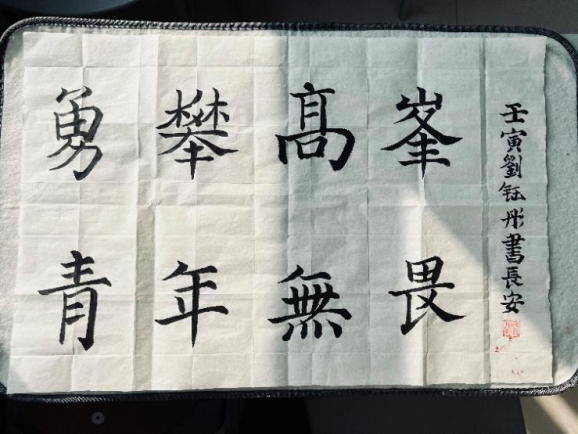 勇攀髙峯
青年無畏
壬寅劉鈺彤書長安